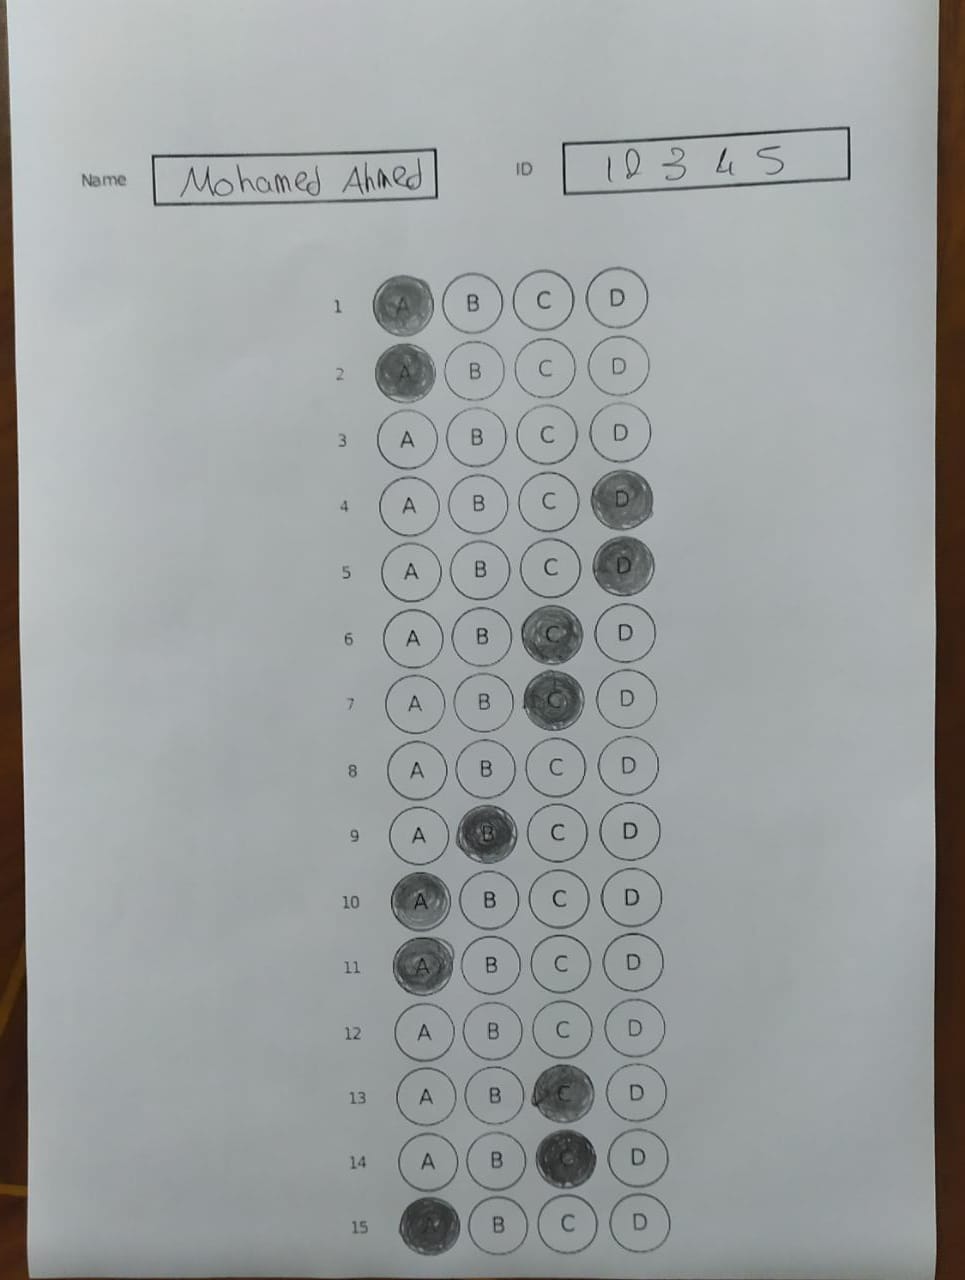 Name Mohamed Ahmed ID 12345
1 A B C D
2 A B C D
3 A B C D
4 A B C D
5 A B C D
6 A B C D
7 A B C D
8 A B C D
9 A B C D
10 A B C D
11 A B C D
12 A B C D
13 A B C D
14 A B C D
15 A B C D